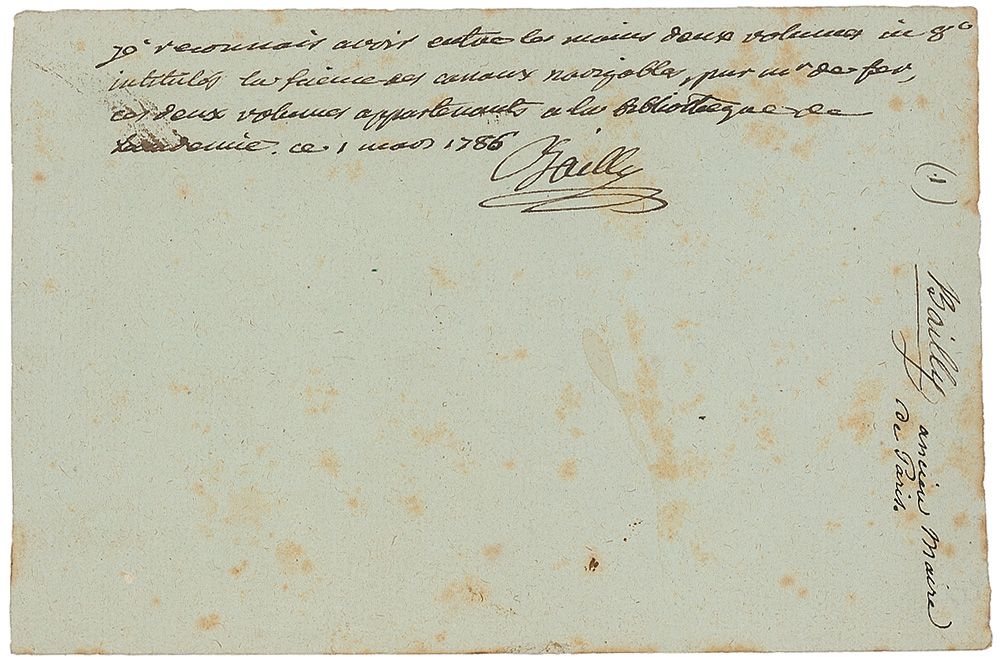 je reconnais avoir entre les mains deux volumes in 8°
intitulés la science des canaux navigables, par mr de fer,
ces deux volumes appartenants a la Bibliotheque de
l'academie. ce 1 mars 1786
Bailly
(1)
Bailly ancien Maire
de Paris.